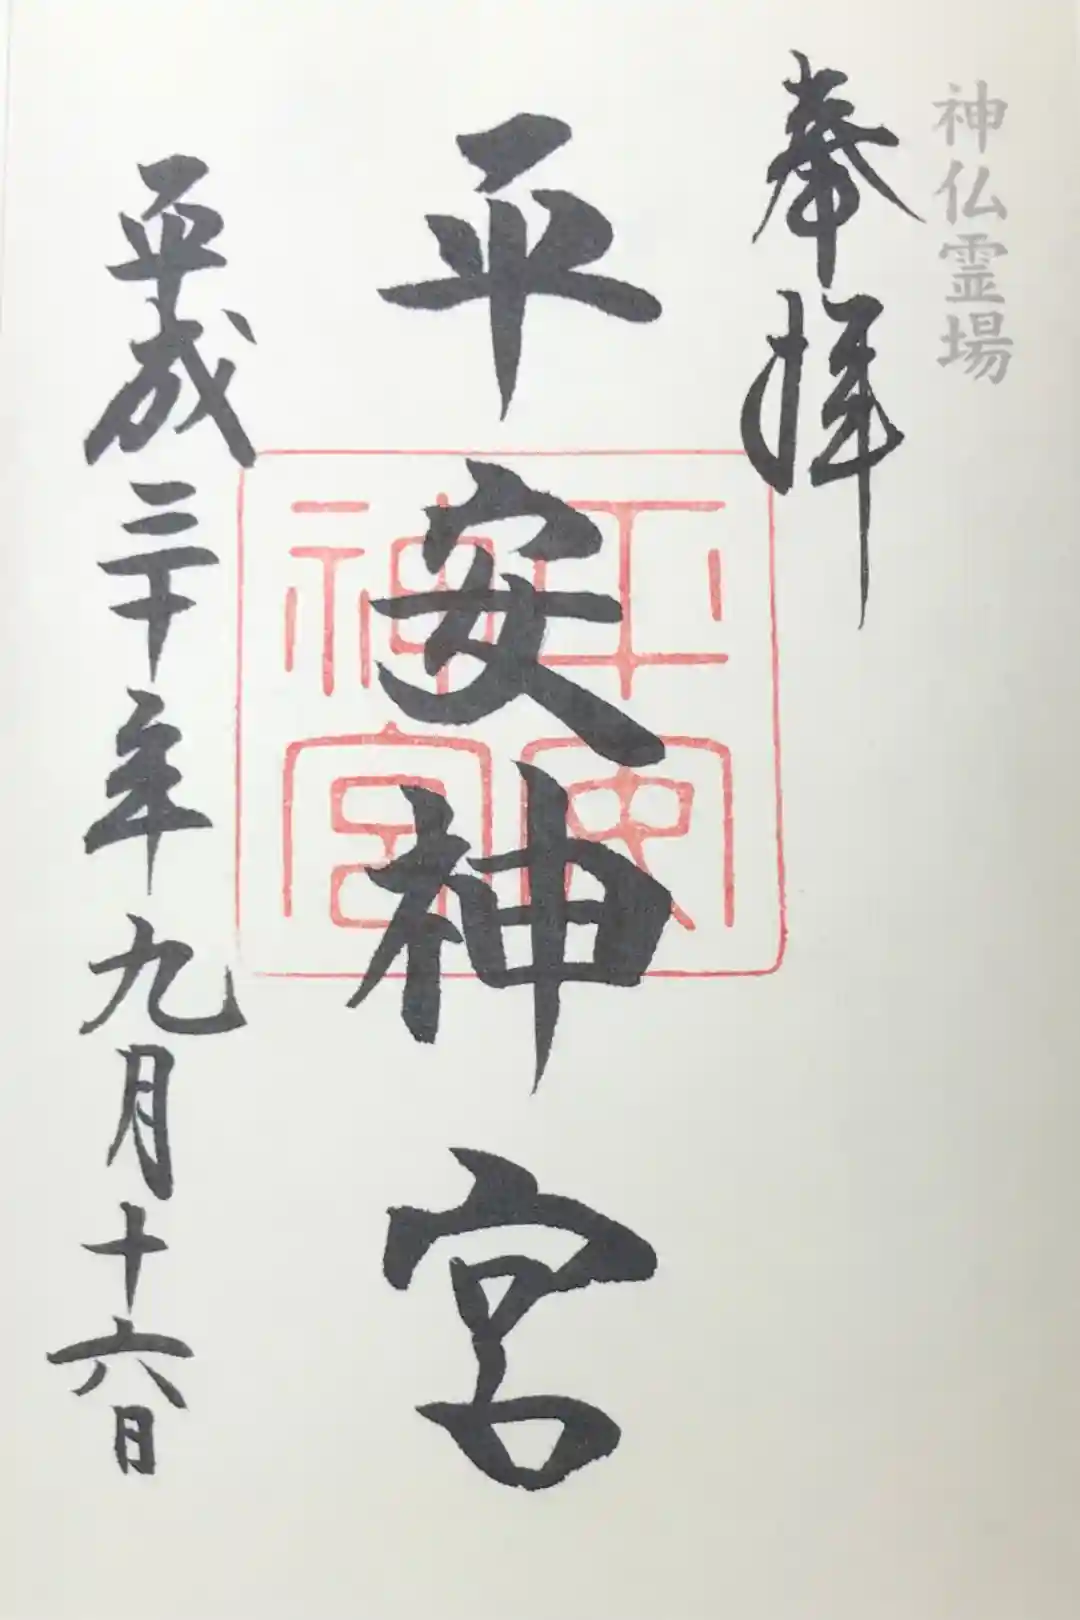 神仏霊場
奉拝
平安神宮
平安神宮
平成三十年九月十六日